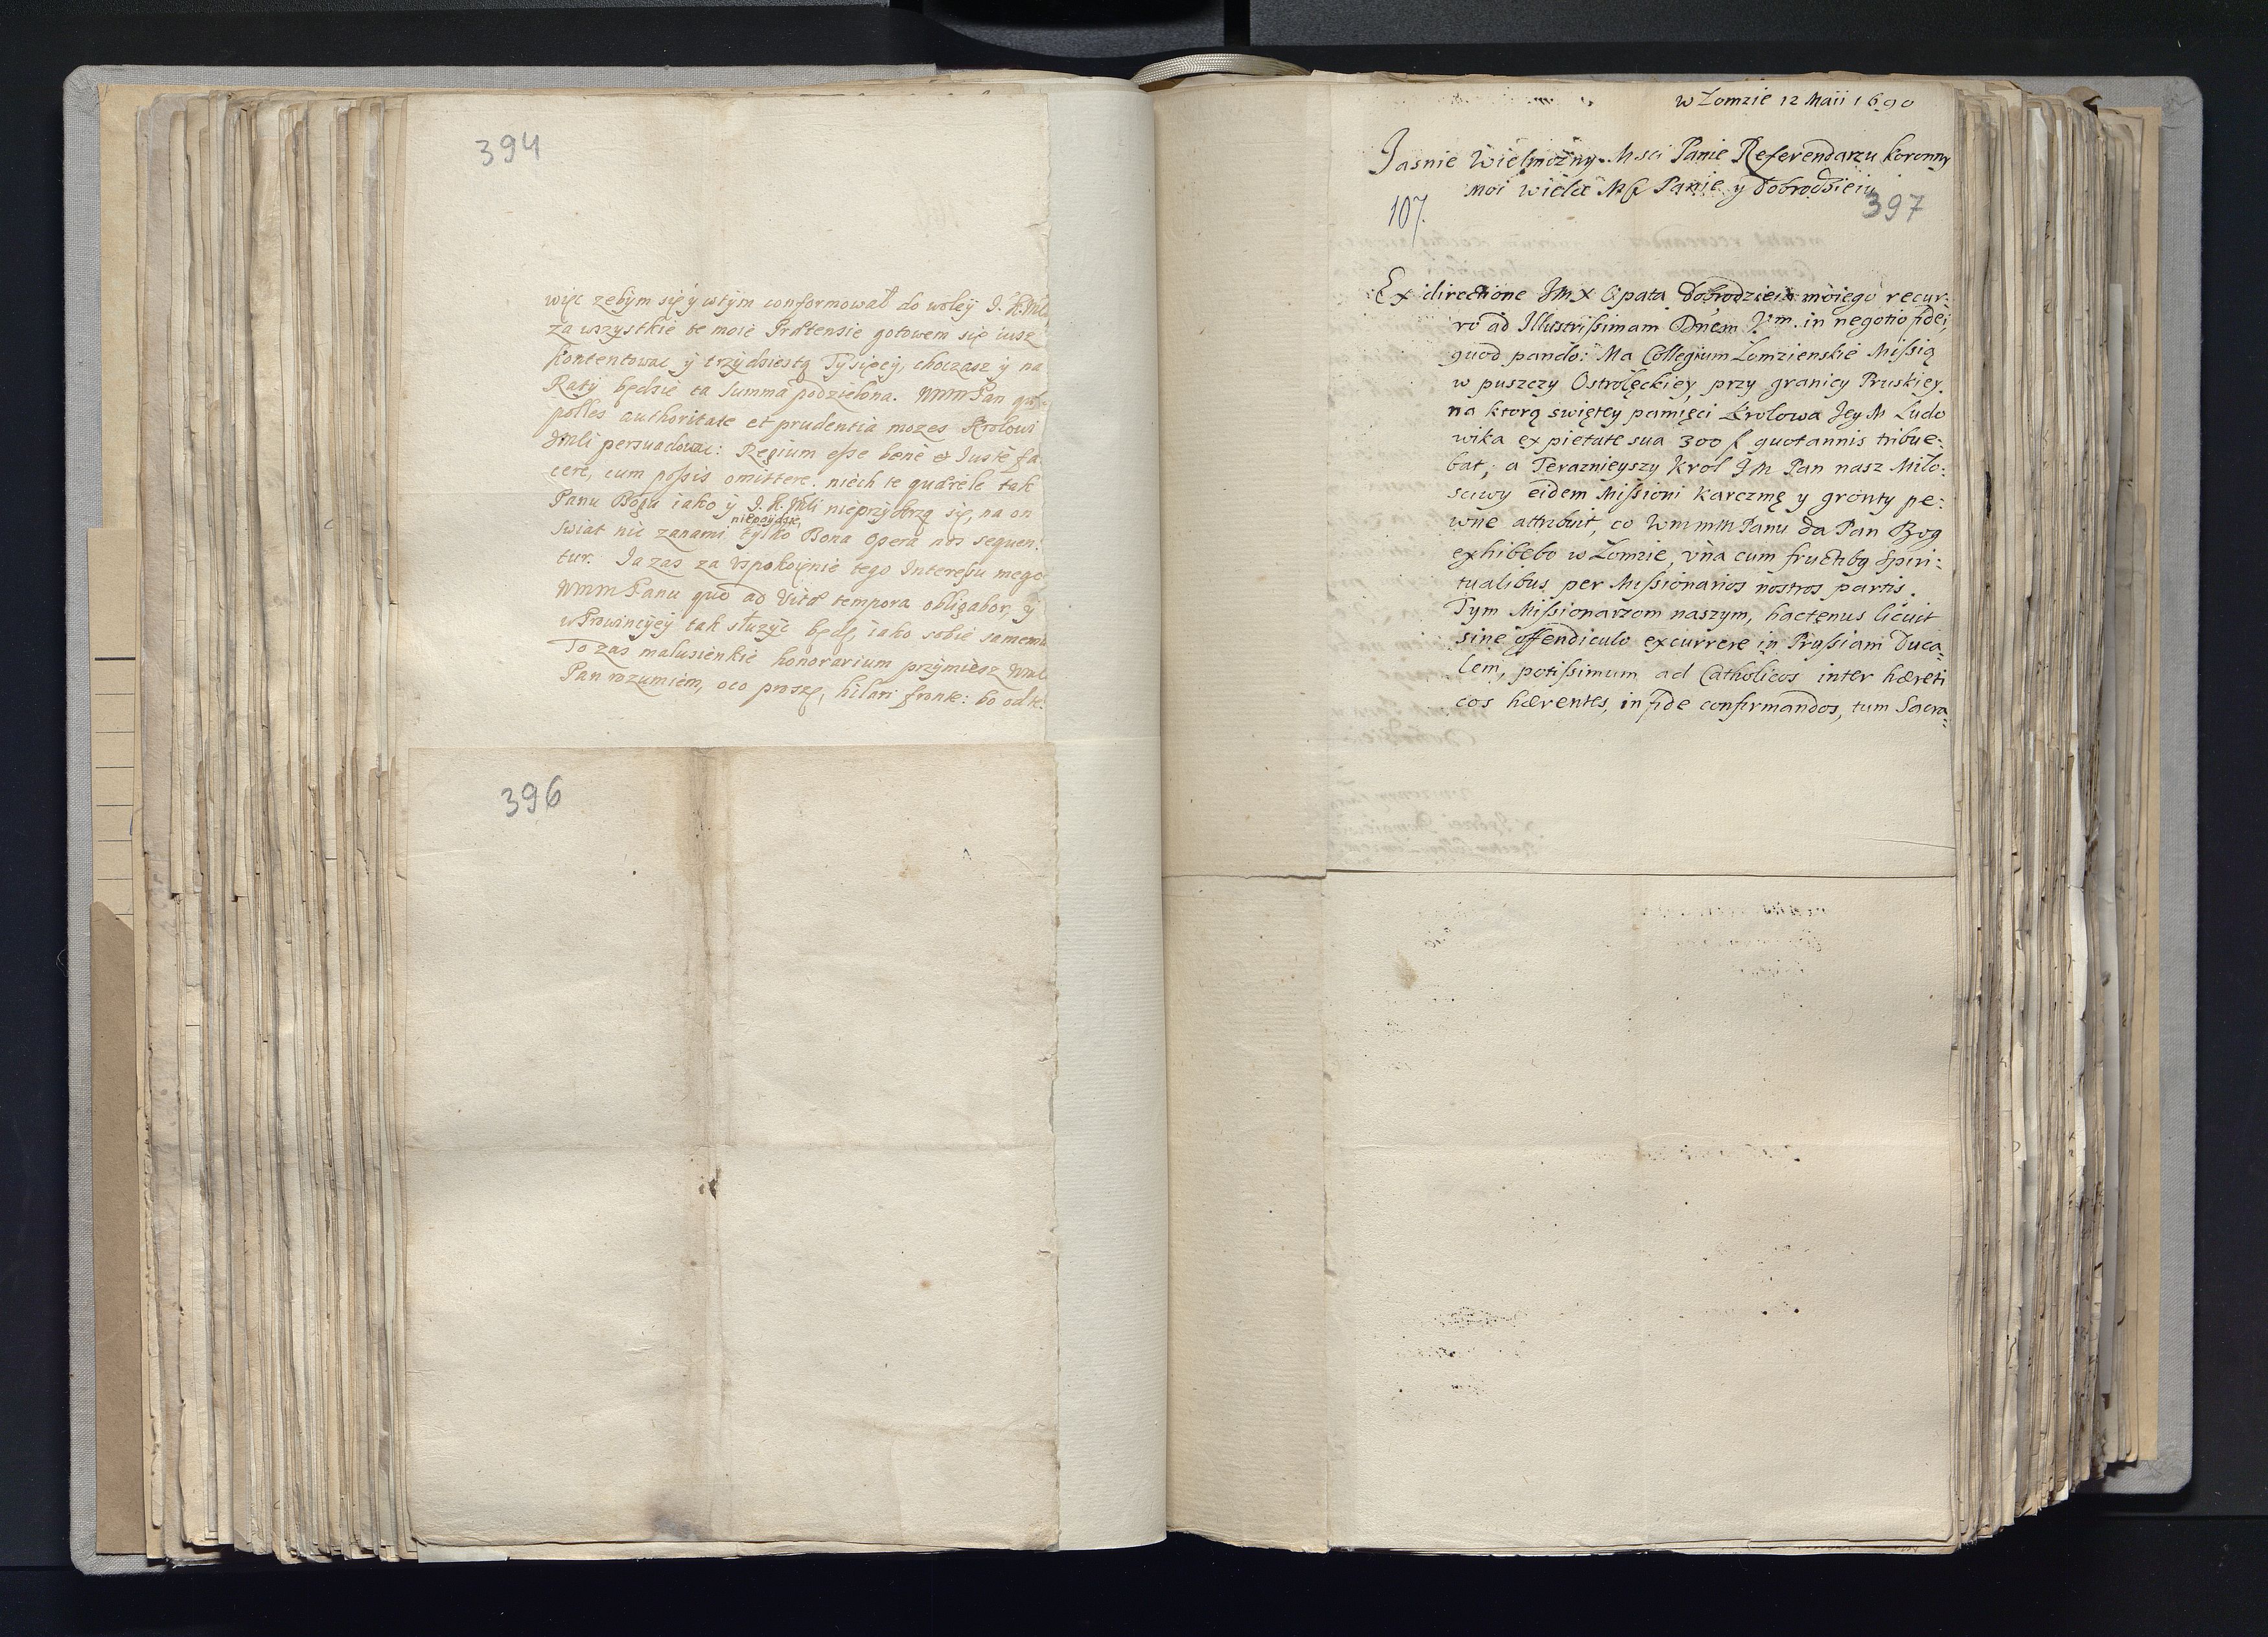 394
więc zebym się y wtym conformował do woley J. K. Mći
za wszystkie te moie Prætensie gotowem się iusz
kontentowac y trzydziestą Tysięcy, choczasz y na
Raty będzie ta summa podzielona. WMMPan qui
polles authoritate et prudentia mozes Krolowi
JMći persvadowac: Regium esse bene et Juste fa
cere, cum possis omittere. niech te quærele tak
Panu Bogu iako y J. K. Mći nieprzykrzą się, na on
swiat nic zanami niepoydzie, tylko Bona Opera nos sequen:
tur. Ja zas za uspokoienie tego Interessu mego
WMMPanu quod ad Vitæ tempora obligabor, y
w Prowincyey tak służyc będę, iako sobie samemu
To zas malusienkie honorarium przymiesz WM
Pan rozumiem, oco proszę, hilari fronte: bo od
396
w Łomzie 12 Maii 1690
Jasnie Wielmożny Msci Panie Referendarzu Koronny
Moi wielce Mć Panie y Dobrodzieiu
107.
397
Ex directione JMX Opata Dobrodzieia moiego recur:
ro ad Illustrissimam Dnem Vm. in negotio fidei,
quod pando: Ma Collegium Łomzienskie Missią
w puszczy Ostrołęckiey, przy granicy Pruskiey.
na ktorą swiętey pamięci Krolowa Jey M Ludo
wika ex pietate sua 300 f quotannis tribue:
bat; a Teraznieyszy Krol JM Pan nasz Miło:
sciwy eidem Missioni karczmę y gronty pe:
wne attribuit, co WmmMPanu da Pan Bog
exhibebo w Łomzie, una cum fructibq Spiri:
tualibus per Missionarios nostros partis.
Tym Missionarzom naszym, hactenus licuit
sine offendiculo excurrere in Prussiam Duca:
lem, potissimum ad Catholicos inter hæreti
cos hærentes, in fide confirmandos, tum Sacra: